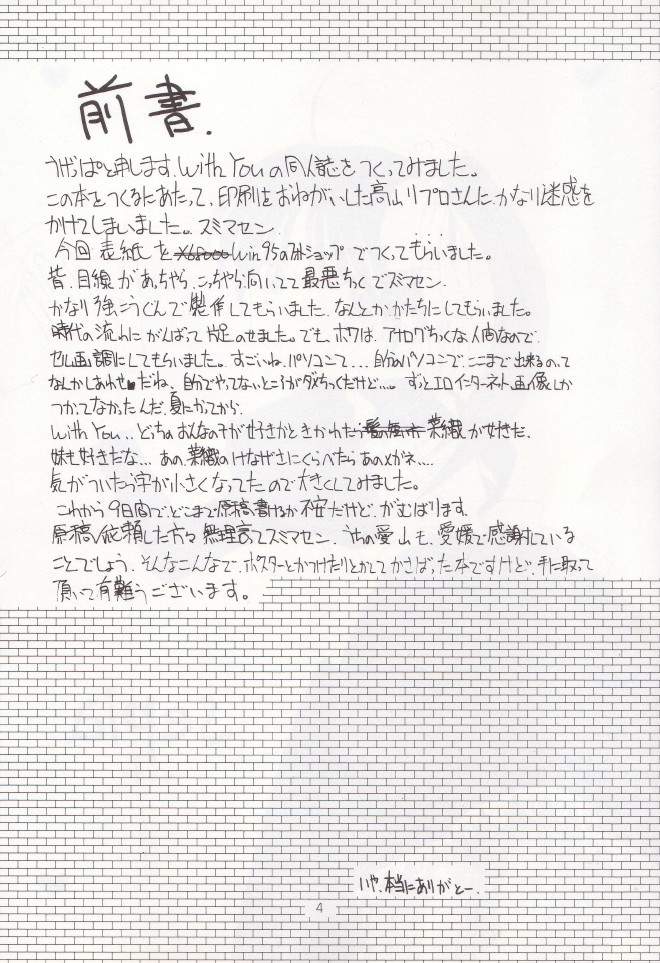 前書.
うげっぱと申します、With Youの同人誌をつくってみました。
この本をつくるにあたって、印刷をおねがいした高山リプロさんに、かなり迷惑を
かけてしまいました。スミマセン...
今回表紙を X68000 Win95のフォトショップでつくってもらいました。
皆、目線があっちやら、こっちやら向いてて最悪ちっくでスミマセン.
かなり強こうぐんで製作してもらいました、なんとかかたちにしてもらいました。
時代の流れにがんばって片足のせました。でも、ボクは、アナログちっくな人間なので、
セル画調にしてもらいました。すごいね、パソコンて...自分のパソコンで、ここまで出来るのって
なんかしあわせ♥だね、自分でやってないところがダメちっくだけど...。ずっとエロインターネット画像しか
つかってなかったんだ、夏にかってから.
With You..どっちのおんなの子が好きかときかれたら 菜織が好きだ.
妹も好きだな...あの、菜織のけなげさにくらべたらあのメガネ....
気がついたら字が小さくなってたので大きくしてみました。
これから9日間で、どこまで原稿書けるか不安だけど、がむばります.
原稿依頼した方々無理言ってスミマセン、うちの愛山も、愛媛で感謝している
ことでしょう、そんなこんなで、ポスターとかつけたりとかしてかさばった本ですけど、手に取って
頂いて有難うございます。
いや、本当にありがとー.
4